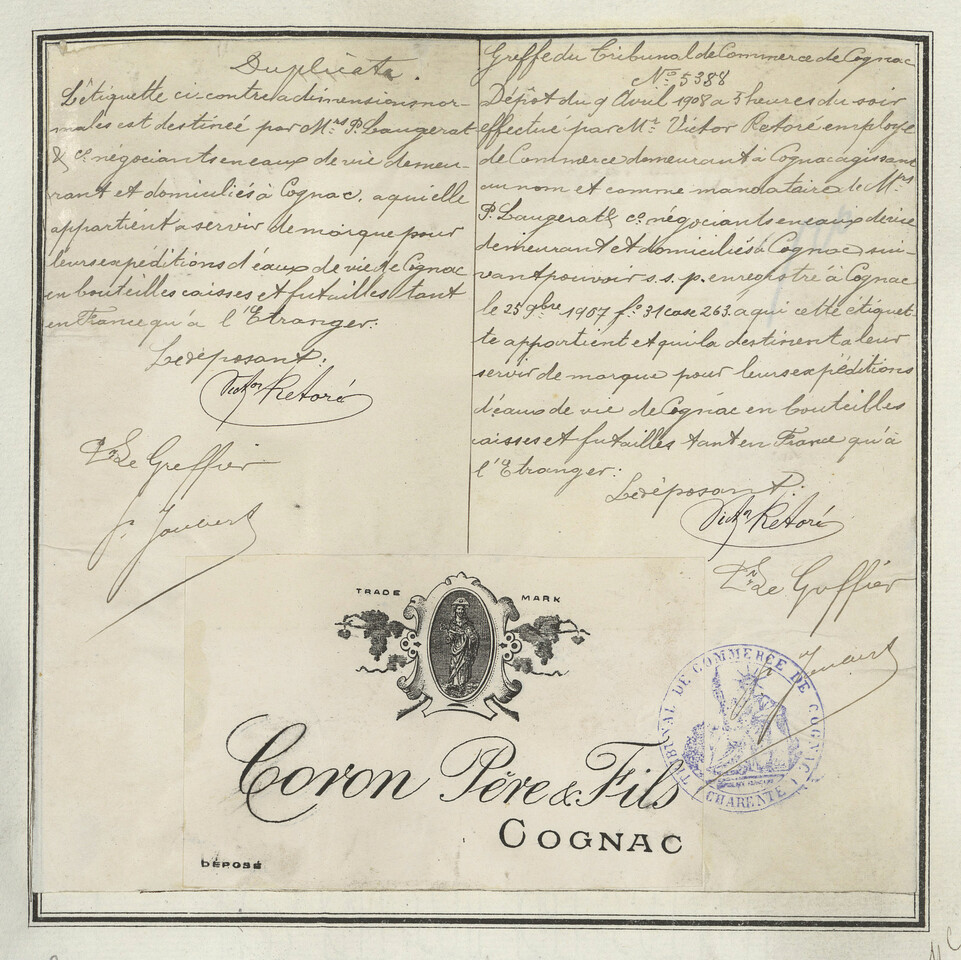 Duplicata.
L'étiquette ci-contre a dimensions nor-
males est destinée par Mrs P. Laugerat
& Co négociants en eaux de vie demeu-
rant et domiciliés à Cognac, a qui elle
appartient a servir de marque pour
leurs expéditions d'eaux de vie de Cognac
en bouteilles caisses et futailles tant
en France qu'à l'Etranger.
Le déposant:
Victor Retoré
Pr Le Greffier
Greffe du Tribunal de Commerce de Cognac
No 5388
Dépôt du 9 Avril 1908 a 5 heures du soir
effectué par Mr Victor Retoré employé
de Commerce demeurant à Cognac agissant
au nom et comme mandataire de Mrs
P. Laugerat & Co négociants en eaux de vie
demeurant et domiciliés à Cognac sui-
vant pouvoir s.s.p. enregistré à Cognac
le 25 9bre 1907 fo 31 case 263. a qui cette étiquet-
te appartient et qui la destinent a leur
servir de marque pour leurs expéditions
d'eaux de vie de Cognac en bouteilles
caisses et futailles tant en France qu'à
l'Etranger:
Le déposant:
Victor Retoré
Pr Le Greffier
TRADE MARK
Coron Père & Fils
COGNAC
DÉPOSÉ
TRIBUNAL DE COMMERCE DE COGNAC
CHARENTE